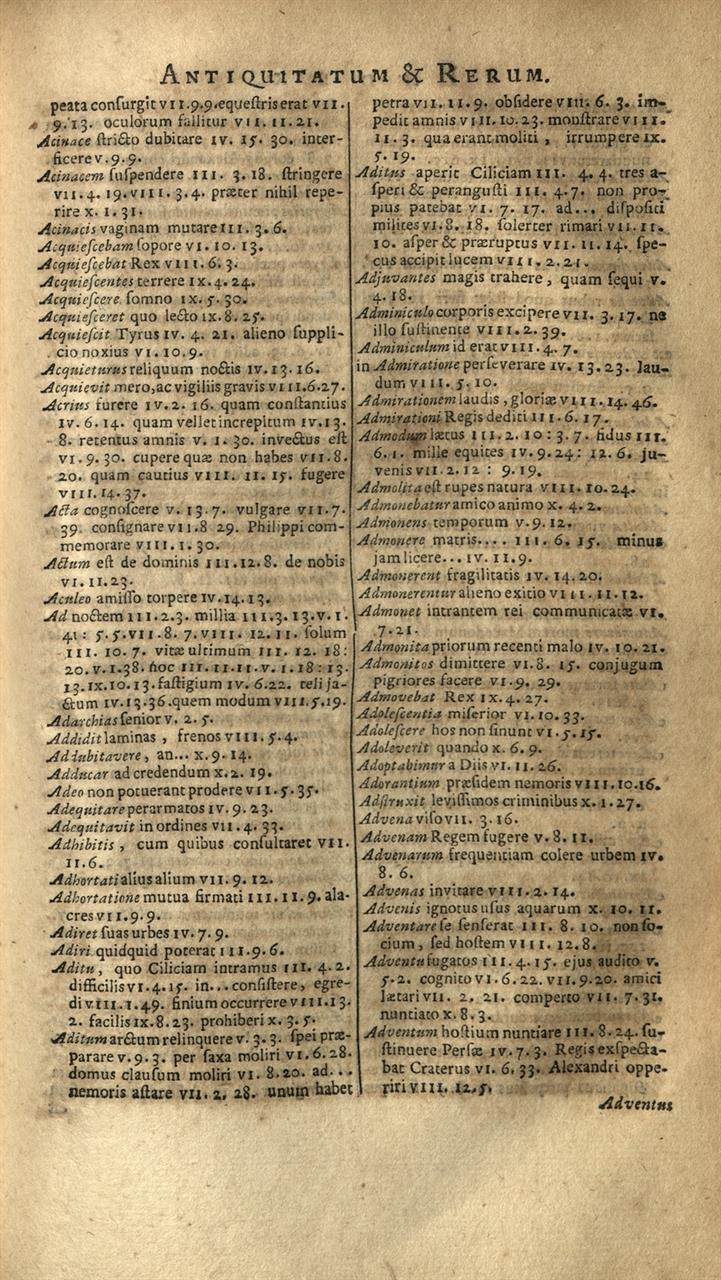 ANTIQUITATUM & RERUM.
peata conſurgit VII.9.9.equeſtris erat VII.
9.13. oculorum fallitur VII. II.21.
Acinace ſtricto dubitare IV. 15. 30. inter-
ficere V.9.9.
Acinacem ſuspendere III. 3.18. ſtringere
VII.4. 19.VIII. 3.4. præter nihil repe-
rire X. I. 31.
Acinacis vaginam mutare III. 3. 6.
Acquieſcebam ſopore VI. 10. 13.
Acquieſcebat Rex VIII.6.3.
Acquieſcentes terrere IX.4.24.
Acquieſcere ſomno IX.5.30.
Acquieſceret quo lecto IX.8.25.
Acquieſcit Tyrus IV. 4. 21. alieno ſuppli-
cio noxius VI.10.9.
Acquieturus reliquum noctis IV.13.16.
Acquievit mero,ac vigiliis gravis VIII.6.27.
Acrius furere IV.2. 16. quam conſtantius
IV.6.14. quam vellet increpitum IV.13.
8. retentus amnis V. I. 30. invectus eſt
VI.9.30. cupere quæ non habes VII.8.
20. quam cautius VIII. II. 15. fugere
VIII.14.37.
Acta cognoſcere V. 13.7. vulgare VII.7.
39. conſignare VII.8 29. Philippi com-
memorare VIII.I.30.
Actum eſt de dominis III.12.8. de nobis
VI.II.23.
Aculeo amiſſo torpere IV.14.13.
Ad noctem III.2.3. millia III.3.13.V.I.
41: 5.5.VII.8.7.VIII. 12.II. ſolum
III. 10.7. vitæ ultimum III. 12. 18:
20.V.I.38. hoc III.II.II.V.I.18:13.
13.IX.10.13.faſtigium IV.6.22. teli ja-
ctum IV.13.36.quem modum VIII.5.19.
Adarchias ſenior V. 2.5.
Addidit laminas, frenos VIII.5.4.
Adiubitavere, an... X.9.14.
Adducar ad credendum X.2. 19.
Adeo non potuerant prodere VII.5.35.
Adequitare perarmatos IV.9.23.
Adequitavit in ordines VII.4.33.
Adhibitis, cum quibus conſultaret VII.
II.6.
Adhortati alius alium VII.9.12.
Adhortatione mutua firmati III.II.9.ala-
cres VII.9.9.
Adiret ſuas urbes IV.7.9.
Adiri quidquid poterat III.9.6.
Aditu, quo Ciliciam intramus III.4.2.
difficilis VI.4.15. in... conſiſtere, egre-
di VIII.I.49. finium occurrere VIII.13.
2. facilis IX.8.23. prohiberi X.3.5.
Aditum arctum relinquere V.3.3. ſpei præ-
parare V.9.3. per ſaxa moliri VI.6.28.
domus clauſum moliri VI. 8.20. ad...
nemoris aſtare VII. 2. 28. unum habet
petra VII.II.9. obſidere VIII. 6. 3. im-
pedit amnis VIII.10.23. monſtrare VIII.
II.3. qua erant moliti, irrumpere IX.
5.19.
Aditus aperit Ciliciam III. 4.4. tres a-
ſperi & perangufti III.4.7. non pro-
pius patebat VI.7.17. ad... diſpoſiti
milites VI.8.18. ſolerter rimari VII.II.
10. aſper & præruptus VII.II.14. ſpe-
cus accipit lucem VIII.2.21.
Adjuvantes magis trahere, quam ſequi V.
4.18.
Adminiculo corporis excipere VII. 3.17. ne
illo ſuſtinente VIII.2.39.
Adminiculum id erat VIII.4.7.
in Admiratione perſeverare IV. 13.23. lau-
dum VIII.5.10.
Admirationem laudis, gloriæ VIII.14.46.
Admirationi Regis dediti III.6.17.
Admodum lætus III.2.10:3.7. fidus III.
6.1. mille equites IV.9.24: 12.6. ju-
venis VII.2.12: 9.19.
Admolita eſt rupes natura VIII.10.24.
Admonebatur amico animo X.4.2.
Admonens temporum V.9.12.
Admonere matris.... III. 6. 15. minus
jam licere... IV. II.9.
Admonerent fragilitatis IV.14.20.
Admonerentur alieno exitio VIII.II.12.
Admonet intrantem rei communicatæ VI.
7.21.
Admonita priorum recenti malo IV.10.21.
Admonitos dimittere VI.8.15. conjugum
pigriores facere VI.9.29.
Admovebat Rex IX.4.27.
Adoleſcentia miſerior VI.10.33.
Adoleſcere hos non ſinunt VI.5.15.
Adoleverit quando X.6.9.
Adoptabimur a Diis VI.II.26.
Adorantium præſidem nemoris VIII.10.16.
Adſtruxit leviſſimos criminibus X.I.27.
Advena viſo VII.3.16.
Advenam Regem fugere V.8.II.
Advenarum frequentiam colere urbem IV.
8.6.
Advenas invitare VIII.2.14.
Advenis ignotus uſus aquarum X.10.II.
Adventare ſe ſenſerat III. 8. 10. non ſo-
cium, ſed hoſtem VIII.12.8.
Adventu fugatos III.4.15. ejus audito V.
5.2. cognito VI.6.22.VII.9.20. amici
lætari VII. 2. 21. comperto VII. 7.31.
nuntiato X.8.3.
Adventum hoſtium nuntiare III.8.24. ſu-
ſtinere Perſæ IV.7.3. Regis exſpecta-
bat Craterus VI. 6. 33. Alexandri oppe-
riri VIII.12.5.
Adventus